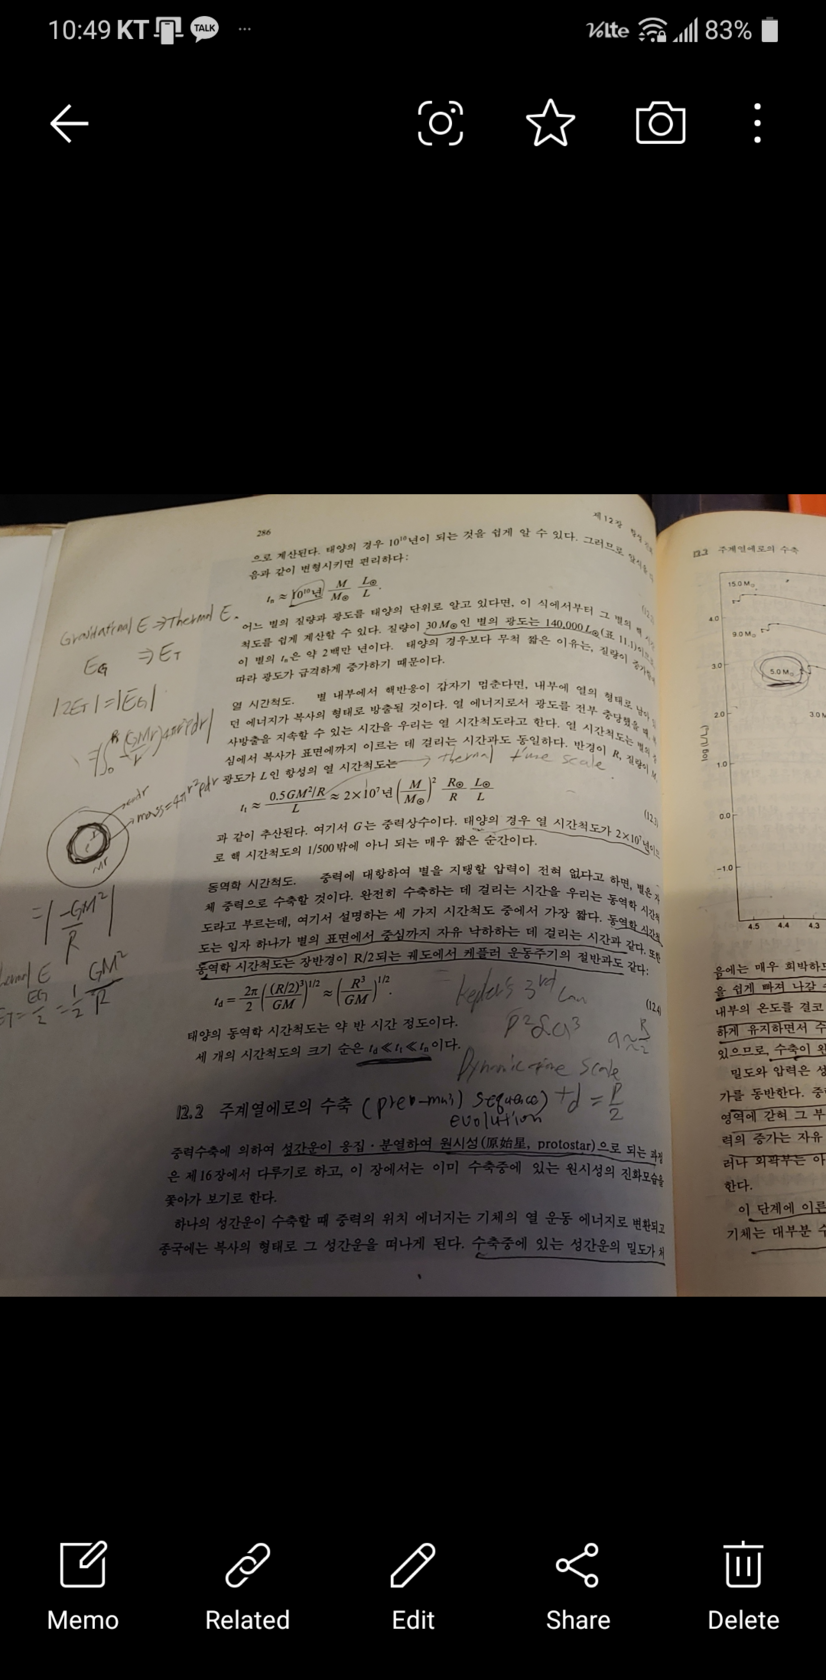 10:49 KT TALK ... VoLte 83%
286
제12장
으로 계산된다. 태양의 경우 10¹⁰년이 되는 것을 쉽게 알 수 있다. 그러므로
음과 같이 변형시키면 편리하다:
tₙ ≈ 10¹⁰년 M/M⊙ L⊙/L.
어느 별의 질량과 광도를 태양의 단위로 알고 있다면, 이 식에서부터 그 별의 핵
척도를 쉽게 계산할 수 있다. 질량이 30 M⊙인 별의 광도는 140,000 L⊙(표 11.1)
이 별의 tₙ은 약 2백만 년이다. 태양의 경우보다 무척 짧은 이유는, 질량이
따라 광도가 급격하게 증가하기 때문이다.
Gravitational E ⇒ Thermal E.
E_G ⇒ E_T
|2E_T| = |E_G|
열 시간척도. 별 내부에서 핵반응이 갑자기 멈춘다면, 내부에 열의 형태로
던 에너지가 복사의 형태로 방출될 것이다. 열 에너지로서 광도를 전부 충당했을 때,
사방출을 지속할 수 있는 시간을 우리는 열 시간척도라고 한다. 열 시간척도는 별의
심에서 복사가 표면에까지 이르는 데 걸리는 시간과도 동일한다. 반경이 R, 질량이
광도가 L인 항성의 열 시간척도는
thermal time scale.
tₜ ≈ 0.5GM²/R / L ≈ 2×10⁷년 (M/M⊙)² R⊙/R L⊙/L
과 같이 추산된다. 여기서 G는 중력상수이다. 태양의 경우 열 시간척도가 2×10⁷년
로 핵 시간척도의 1/500밖에 아니 되는 매우 짧은 순간이다.
mass=4πr²ρdr
=|-GM²/R|
E_G/2 = 1/2 GM²/R
동역학 시간척도. 중력에 대항하여 별을 지탱할 압력이 전혀 없다고 하면, 별은
체 중력으로 수축할 것이다. 완전히 수축하는 데 걸리는 시간을 우리는 동역학 시간척
도라고 부르는데, 여기서 설명하는 세 가지 시간척도 중에서 가장 짧다. 동역학 시간척
도는 입자 하나가 별의 표면에서 중심까지 자유 낙하하는 데 걸리는 시간과 같다. 또한
동역학 시간척도는 장반경이 R/2되는 궤도에서 케플러 운동주기의 절반과도 같다:
t_d = 2π/2 ((R/2)³/GM)^1/2 ≈ (R³/GM)^1/2.
Kepler's 3rd Law
P² ∝ a³
a ≈ R/2
태양의 동역학 시간척도는 약 반 시간 정도이다.
세 개의 시간척도의 크기 순은 t_d ≪ tₜ ≪ tₙ이다.
Dynamic time scale
t_d = P/2
12.2 주계열에로의 수축 (pre-main sequence)
evolution
중력수축에 의하여 성간운이 응집·분열하여 원시성(原始星, protostar)으로 되는 과정
은 제16장에서 다루기로 하고, 이 장에서는 이미 수축중에 있는 원시성의 진화모습을
쫓아가 보기로 한다.
하나의 성간운이 수축할 때 중력의 위치 에너지는 기체의 열 운동 에너지로 변환되고
종국에는 복사의 형태로 그 성간운을 떠나게 된다. 수축중에 있는 성간운의 밀도가
주계열에로의 수축
15.0 M⊙
4.0
9.0 M⊙
3.0
5.0 M⊙
2.0
3.0
1.0
0.0
-1.0
4.5 4.4 4.3
log(L/L⊙)
음에는 매우 희박하
을 쉽게 빠져 나갈
내부의 온도를 결코
하게 유지하면서
있으므로, 수축이
밀도와 압력은
가를 동반한다.
영역에 갇혀 그
력의 증가는 자유
러나 외곽부는
한다.
이 단계에
기체는 대부분
Memo Related Edit Share Delete